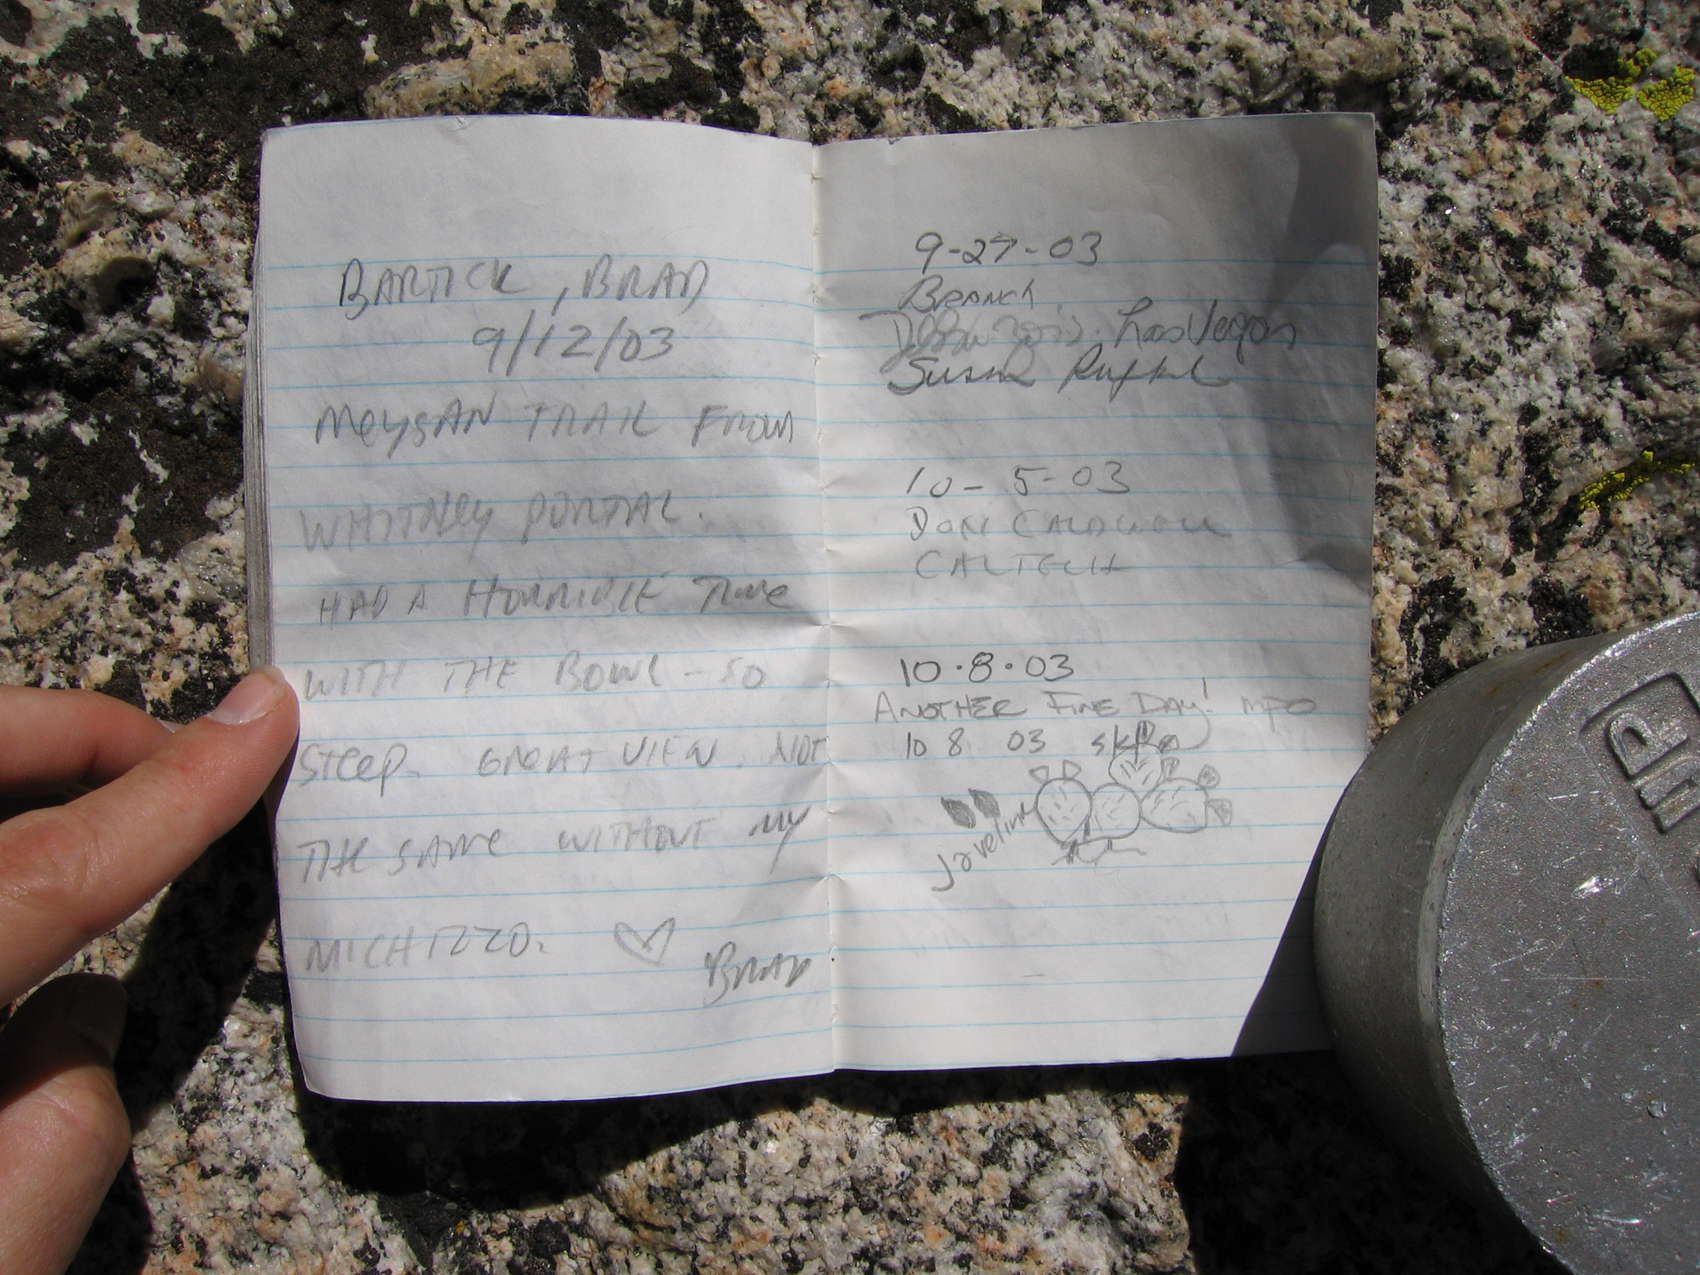 BARTICK, BRAD
9/12/03
MeYSAN TRAIL FROM
WHITNEY PORTAL.
HAD A HORRIBLE TIME
WITH THE BOWL - SO
STEEP. GREAT VIEW. NOT
THE SAME WITHOUT MY
MICHIZZO. ♡
BRAD
9-27-03
Branch
Las Vegas
Susan
10-5-03
DON CALDWELL
CALTECH
10.8.03
ANOTHER FINE DAY! MPO
10 8 03
Javeline